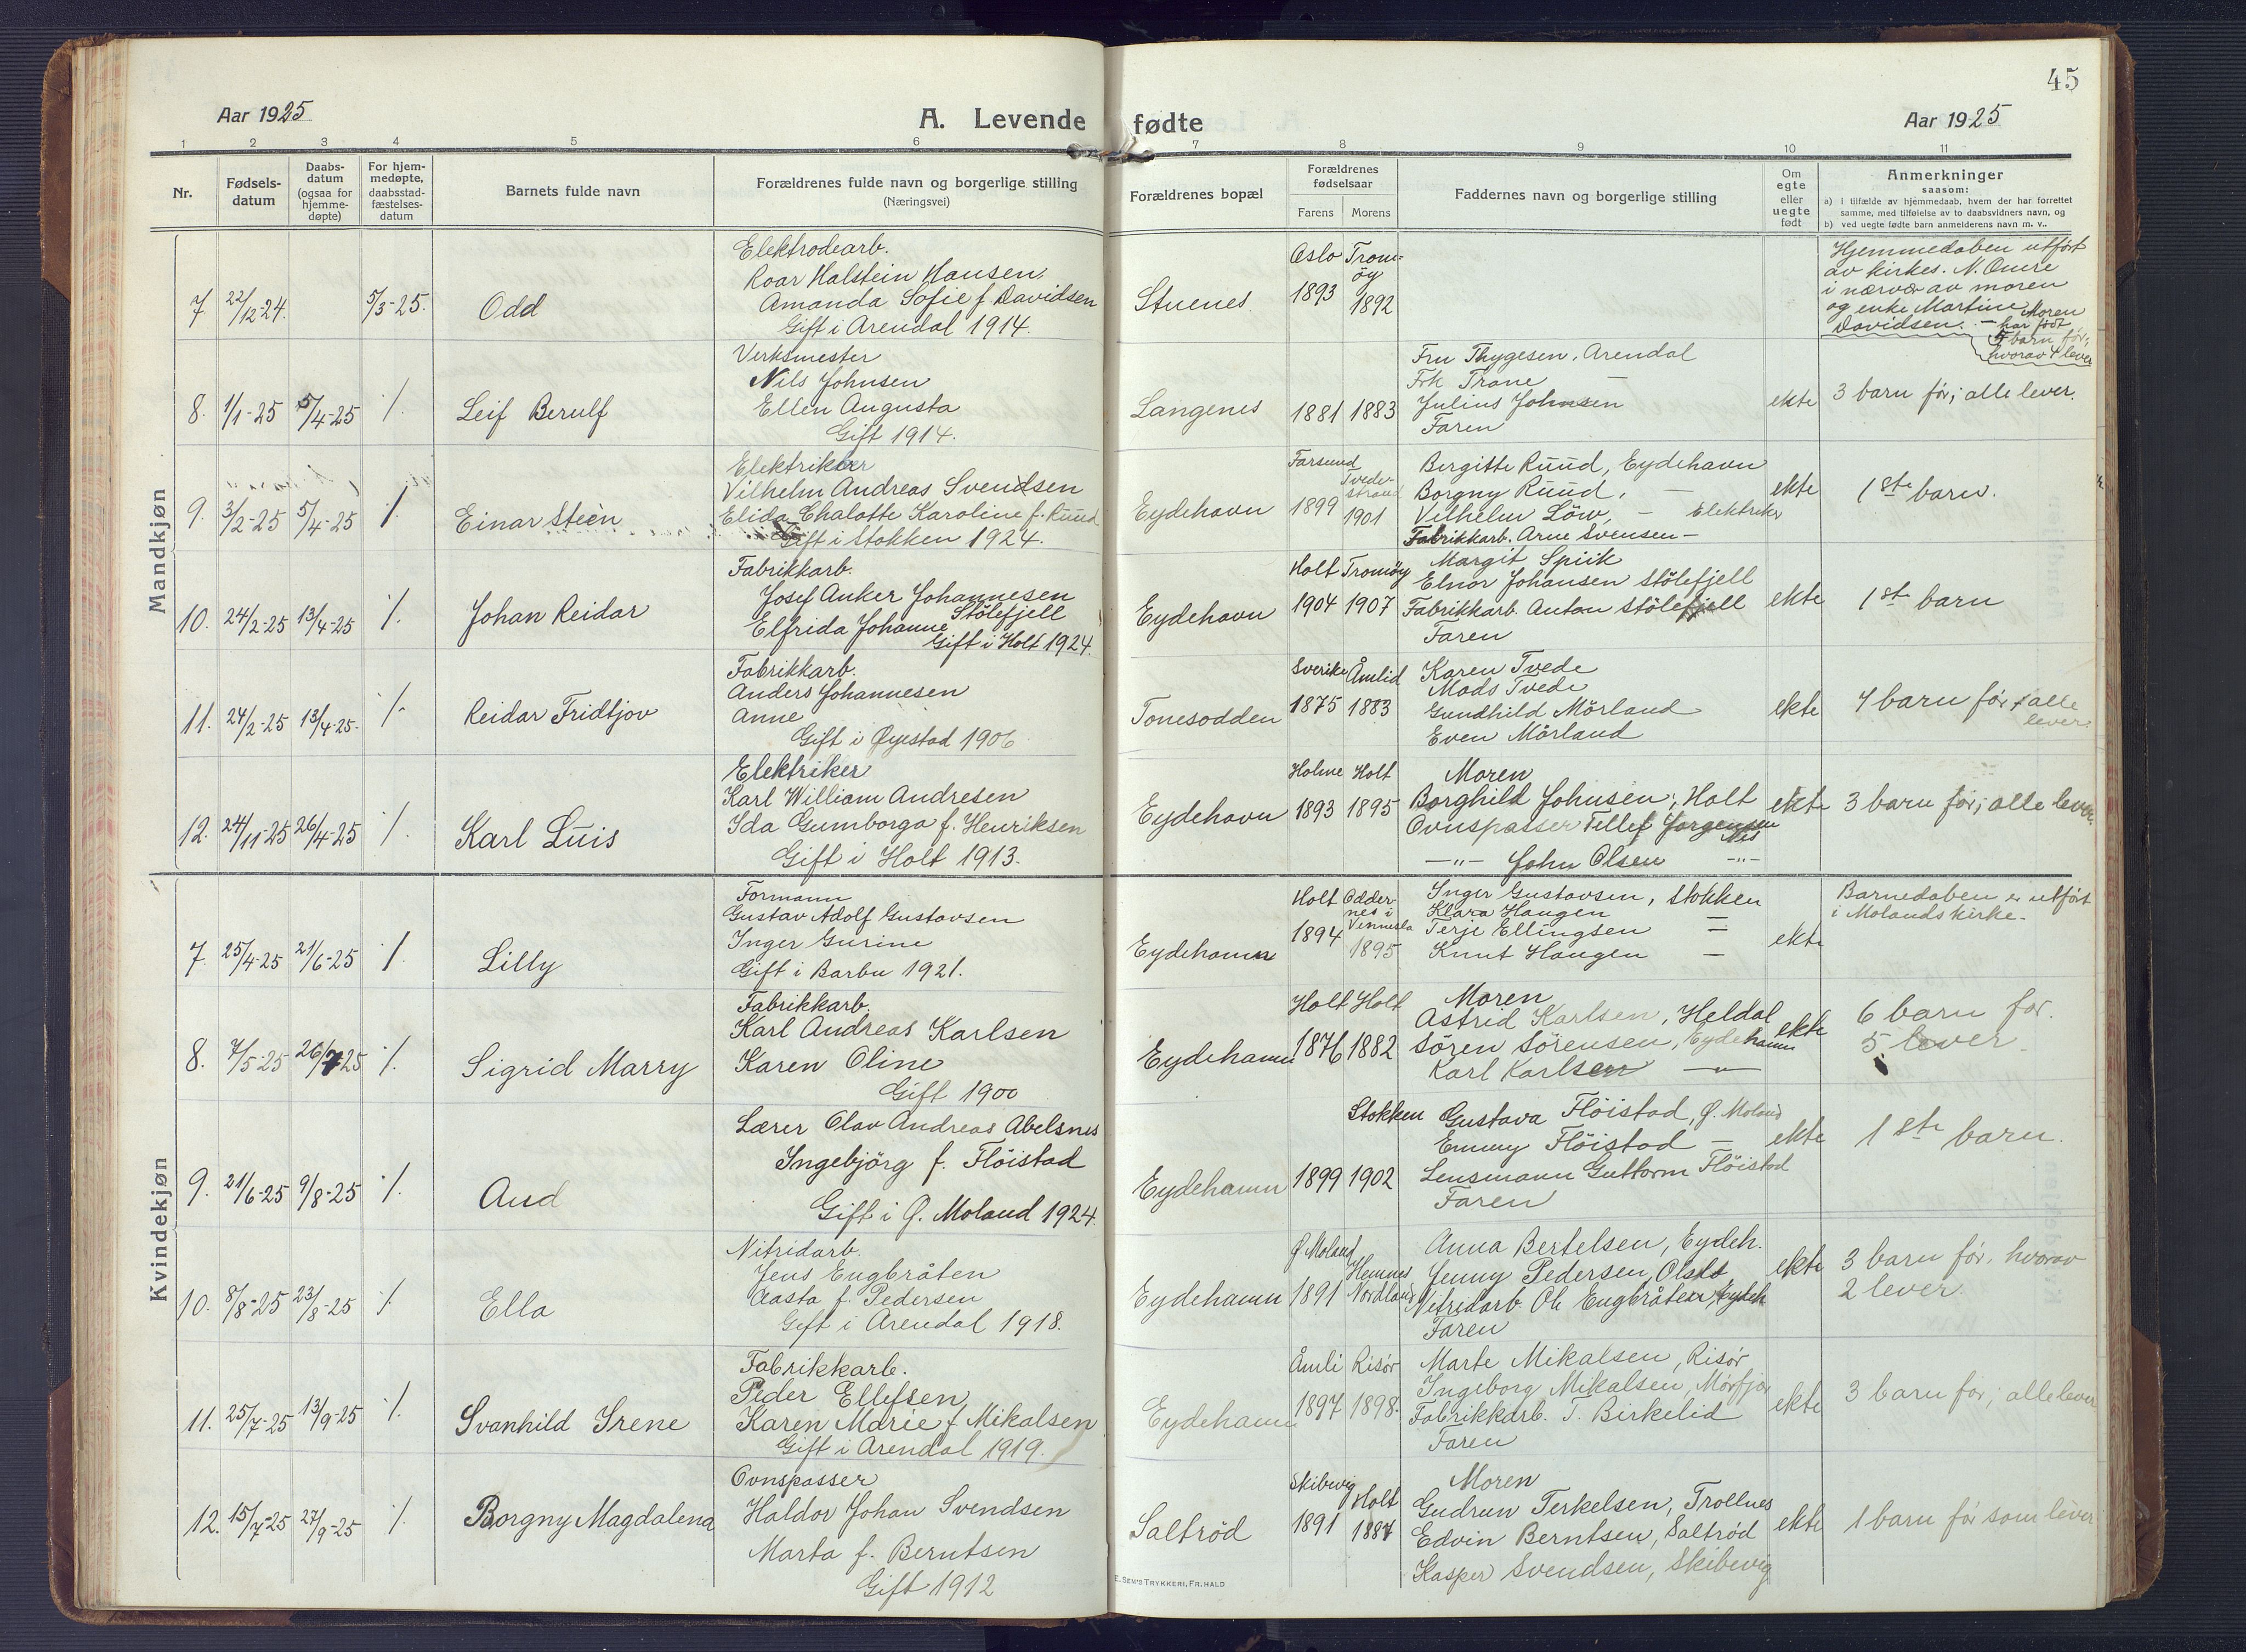 45
Aar 1925
A. Levende fødte
Aar 1925
1 2 3 4 5 6 7 8 9 10 11
Nr.
Fødsels-
datum
Daabs-
datum
(ogsaa for
hjemme-
døpte)
For hjem-
medøpte,
daabsstad-
fæstelses-
datum
Barnets fulde navn
Forældrenes fulde navn og borgerlige stilling
(Næringsvei)
Forældrenes bopæl
Forældrenes
fødselsaar
Farens Morens
Faddernes navn og borgerlige stilling
Om
egte
eller
uegte
født
Anmerkninger
saasom:
a) i tilfælde av hjemmedaab, hvem der har forrettet
samme, med tilføielse av to daabsvidners navn, og
b) ved uegte fødte barn anmelderens navn m. v..
Mandkjøn
7. 22/12-24. 5/3-25. Odd
Elektrodearb.
Roar Halstein Hansen,
Amanda Sofie f. Davidsen
Gift i Arendal 1914.
Stuenes
Oslo
1893
Trom-
öy
1892
Hjemmedaben utført
av kirkes. N. Omre
i nærvær av moren
og enke Martine
Davidsen. - Moren
har født
5 barn før;
hvorav 4 lever
8. 1/1-25 5/4-25 ./. Leif Berulf
Verksmester
Nils Johnsen
Ellen Augusta
Gift 1914.
Langenes
1881 1883
Fru Thygesen, Arendal
Frk Trane —
Julius Johnsen
Faren
ekte
3 barn før; alle lever.
9. 3/2-25 5/4-25 ./. Einar Steen
Elektriker
Vilhelm Andreas Svendsen
Elida Chalotte Karoline f. Ruud
Gift i Stokken 1924.
Eydehavn
Farsund
1899
Tvede-
strand
1901
Bergitte Ruud, Eydehavn
Borgny Ruud, —
Vilhelm Löw, — Elektriker
Fabrikkarb. Arne Svensen —
ekte
1ste barn.
10. 24/2-25 13/4-25 ./. Johan Reidar
Fabrikkarb.
Josef Anker Johannesen
Stölefjell
Elfrida Johanne
Gift i Holt 1924.
Eydehavn
Holt Tromöy
1904 1907
Margit Spiik
Elnor Johansen Stölefjell
Fabrikkarb. Anton Stölefjell
Faren
ekte
1st barn
11. 24/2-25 13/4-25. ./. Reidar Fridtjov
Fabrikkarb.
Anders Johannesen
Anne
Gift i Øyestad 1906
Tonesodden
Sverike Åmlid
1875 1883
Karen Tvede
Mads Tvede
Gundhild Mörland
Even Mörland
ekte
4 barn før, alle
lever.
12. 24/11-25 26/4-25 ./. Karl Luis
Elektriker
Karl William Andresen
Ida Gumborga f. Henriksen
Gift i Holt 1913.
Eydehavn
Holme Holt
1893 1895
Moren
Borghild Johnsen, Holt
Ovnspasser Tellef Jorgensen
Nes
—"— John Olsen —"—
ekte
3 barn før; alle lever.
Kvindekjøn
7. 25/4-25 21/6-25 ./. Lilly
Formann
Gustav Adolf Gustavsen
Inger Gurine
Gift i Barbu 1921.
Eydehamn
Holt
1894
Odder-
nes i
Vennesla
1895
Inger Gustavsen, Stokken
Klara Haugen —
Terje Ellingsen —
Knut Haugen —
ekte
Barnedaben er utført
i Molands kirke.
8. 7/5-25 26/7-25 ./. Sigrid Marry
Fabrikkarb.
Karl Andreas Karlsen
Karen Oline
Gift 1900
Eydehamn
Holt Holt
1876 1882
Moren
Astrid Karlsen, Heldal
Sören Sörensen, Eydehamn
Karl Karlsen —"—
ekte
6 barn før.
5 lever
9. 21/6-25 9/8-25 ./. Aud
Lærer Olav Andreas Abelsnes
Ingebjörg f. Flöistad
Gift i Ø. Moland 1924.
Eydehamn
Stokken
1899 1902
Gustava Flöistad, Ø. Moland
Emmy Flöistad —
Lensmann Guttorm Flöistad
Faren
ekte
1 ste barn.
10. 8/8-25 23/8-25 ./. Ella
Nitridarb.
Jens Engbråten
Aasta f. Pedersen
Gift i Arendal 1918.
Eydehamn
Ø Moland
1891
Hemnes
Nordland
Anna Bertelsen, Eydeh.
Jenny Pedersen, Oslo
Nitridarb. Ole Engbråten, Eydeh
Faren
ekte
3 barn før, hvorav
2 lever.
11. 25/7-25 13/9-25 ./. Svanhild Irene
Fabrikkarb.
Peder Ellefsen
Karen Marie f. Mikalsen
Gift i Arendal 1919.
Eydehamn
Åmli Risör
1897 1898.
Marte Mikalsen, Risör
Ingeborg Mikalsen, Mörfjær
Fabrikkarb. T. Birkelid
Faren
ekte
3 barn før; alle lever
12. 15/7-25 27/9-25 ./. Borgny Magdalena
Ovnspasser
Haldor Johan Svendsen
Marta f. Berntsen
Gift 1912
Saltröd
Skibevig Holt
1891 1887
Moren
Gudrun Terkelsen, Trollnes
Edvin Berntsen, Saltröd
Kasper Svendsen, Skibevig
ekte
1 barn før som lever
E. SEM'S TRYKKERI, FR. HALD